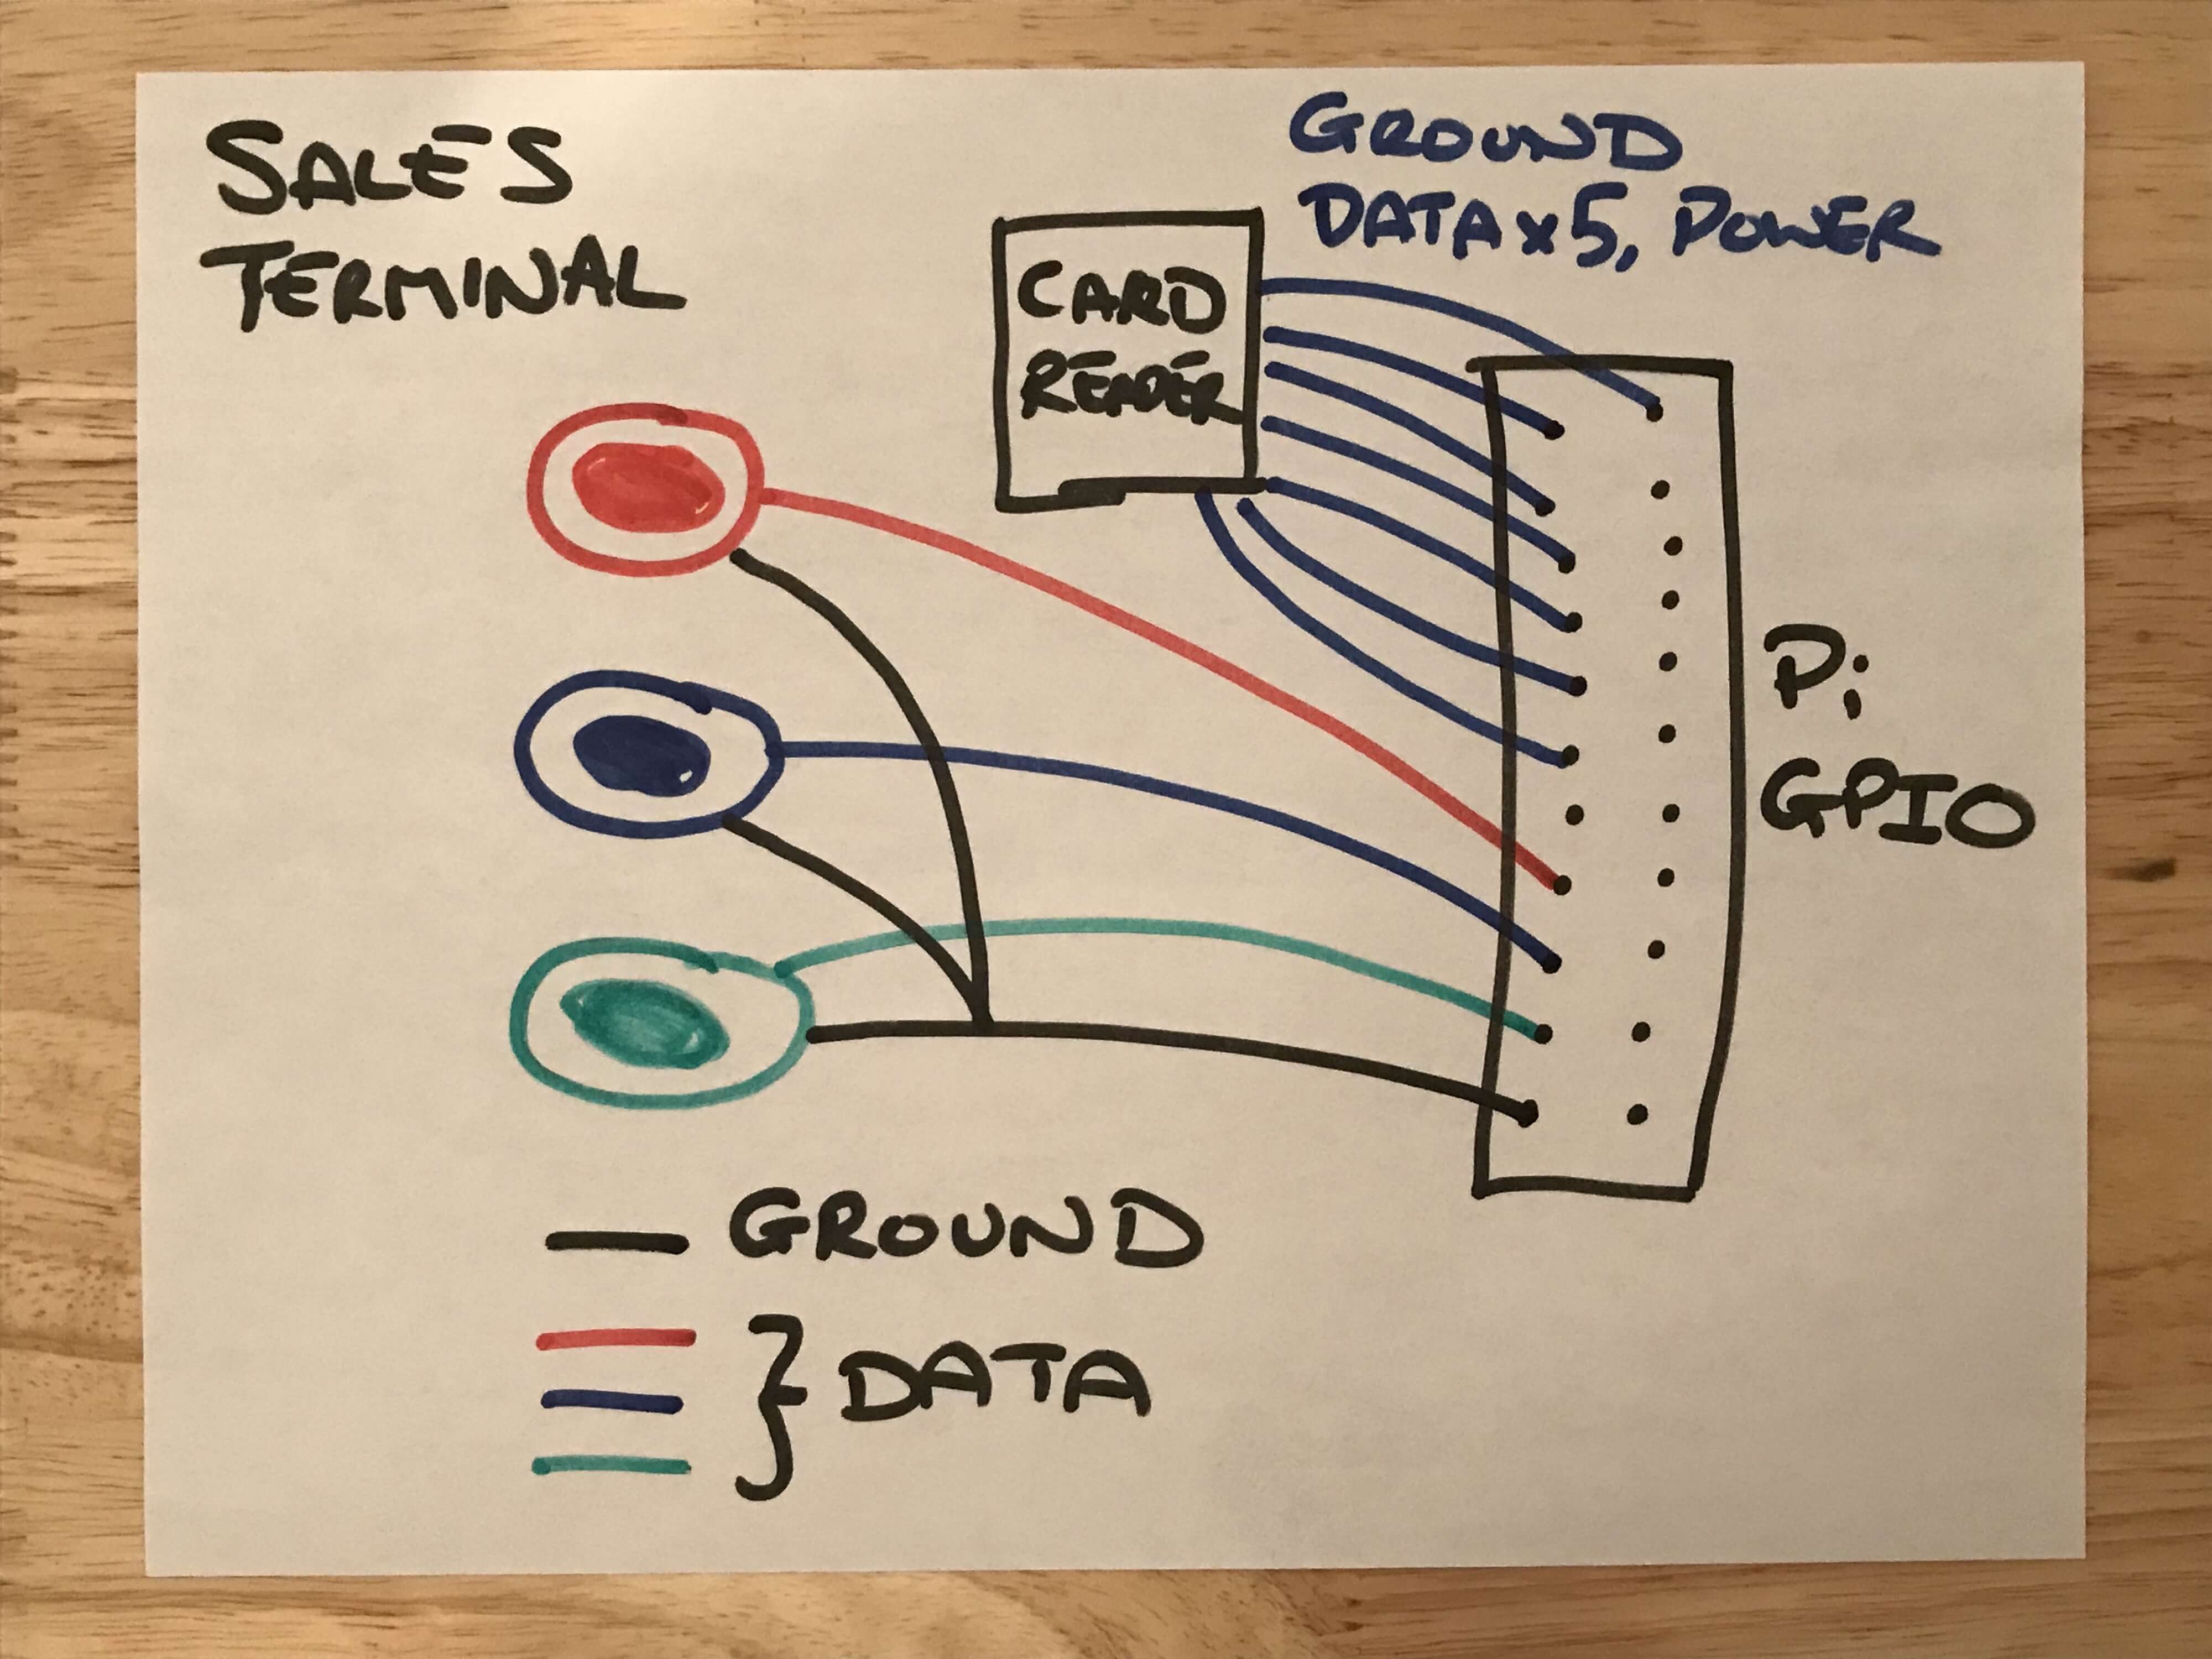 SALES
TERMINAL
GROUND
DATA x 5, POWER
CARD
READER
Pi
GPIO
GROUND
DATA